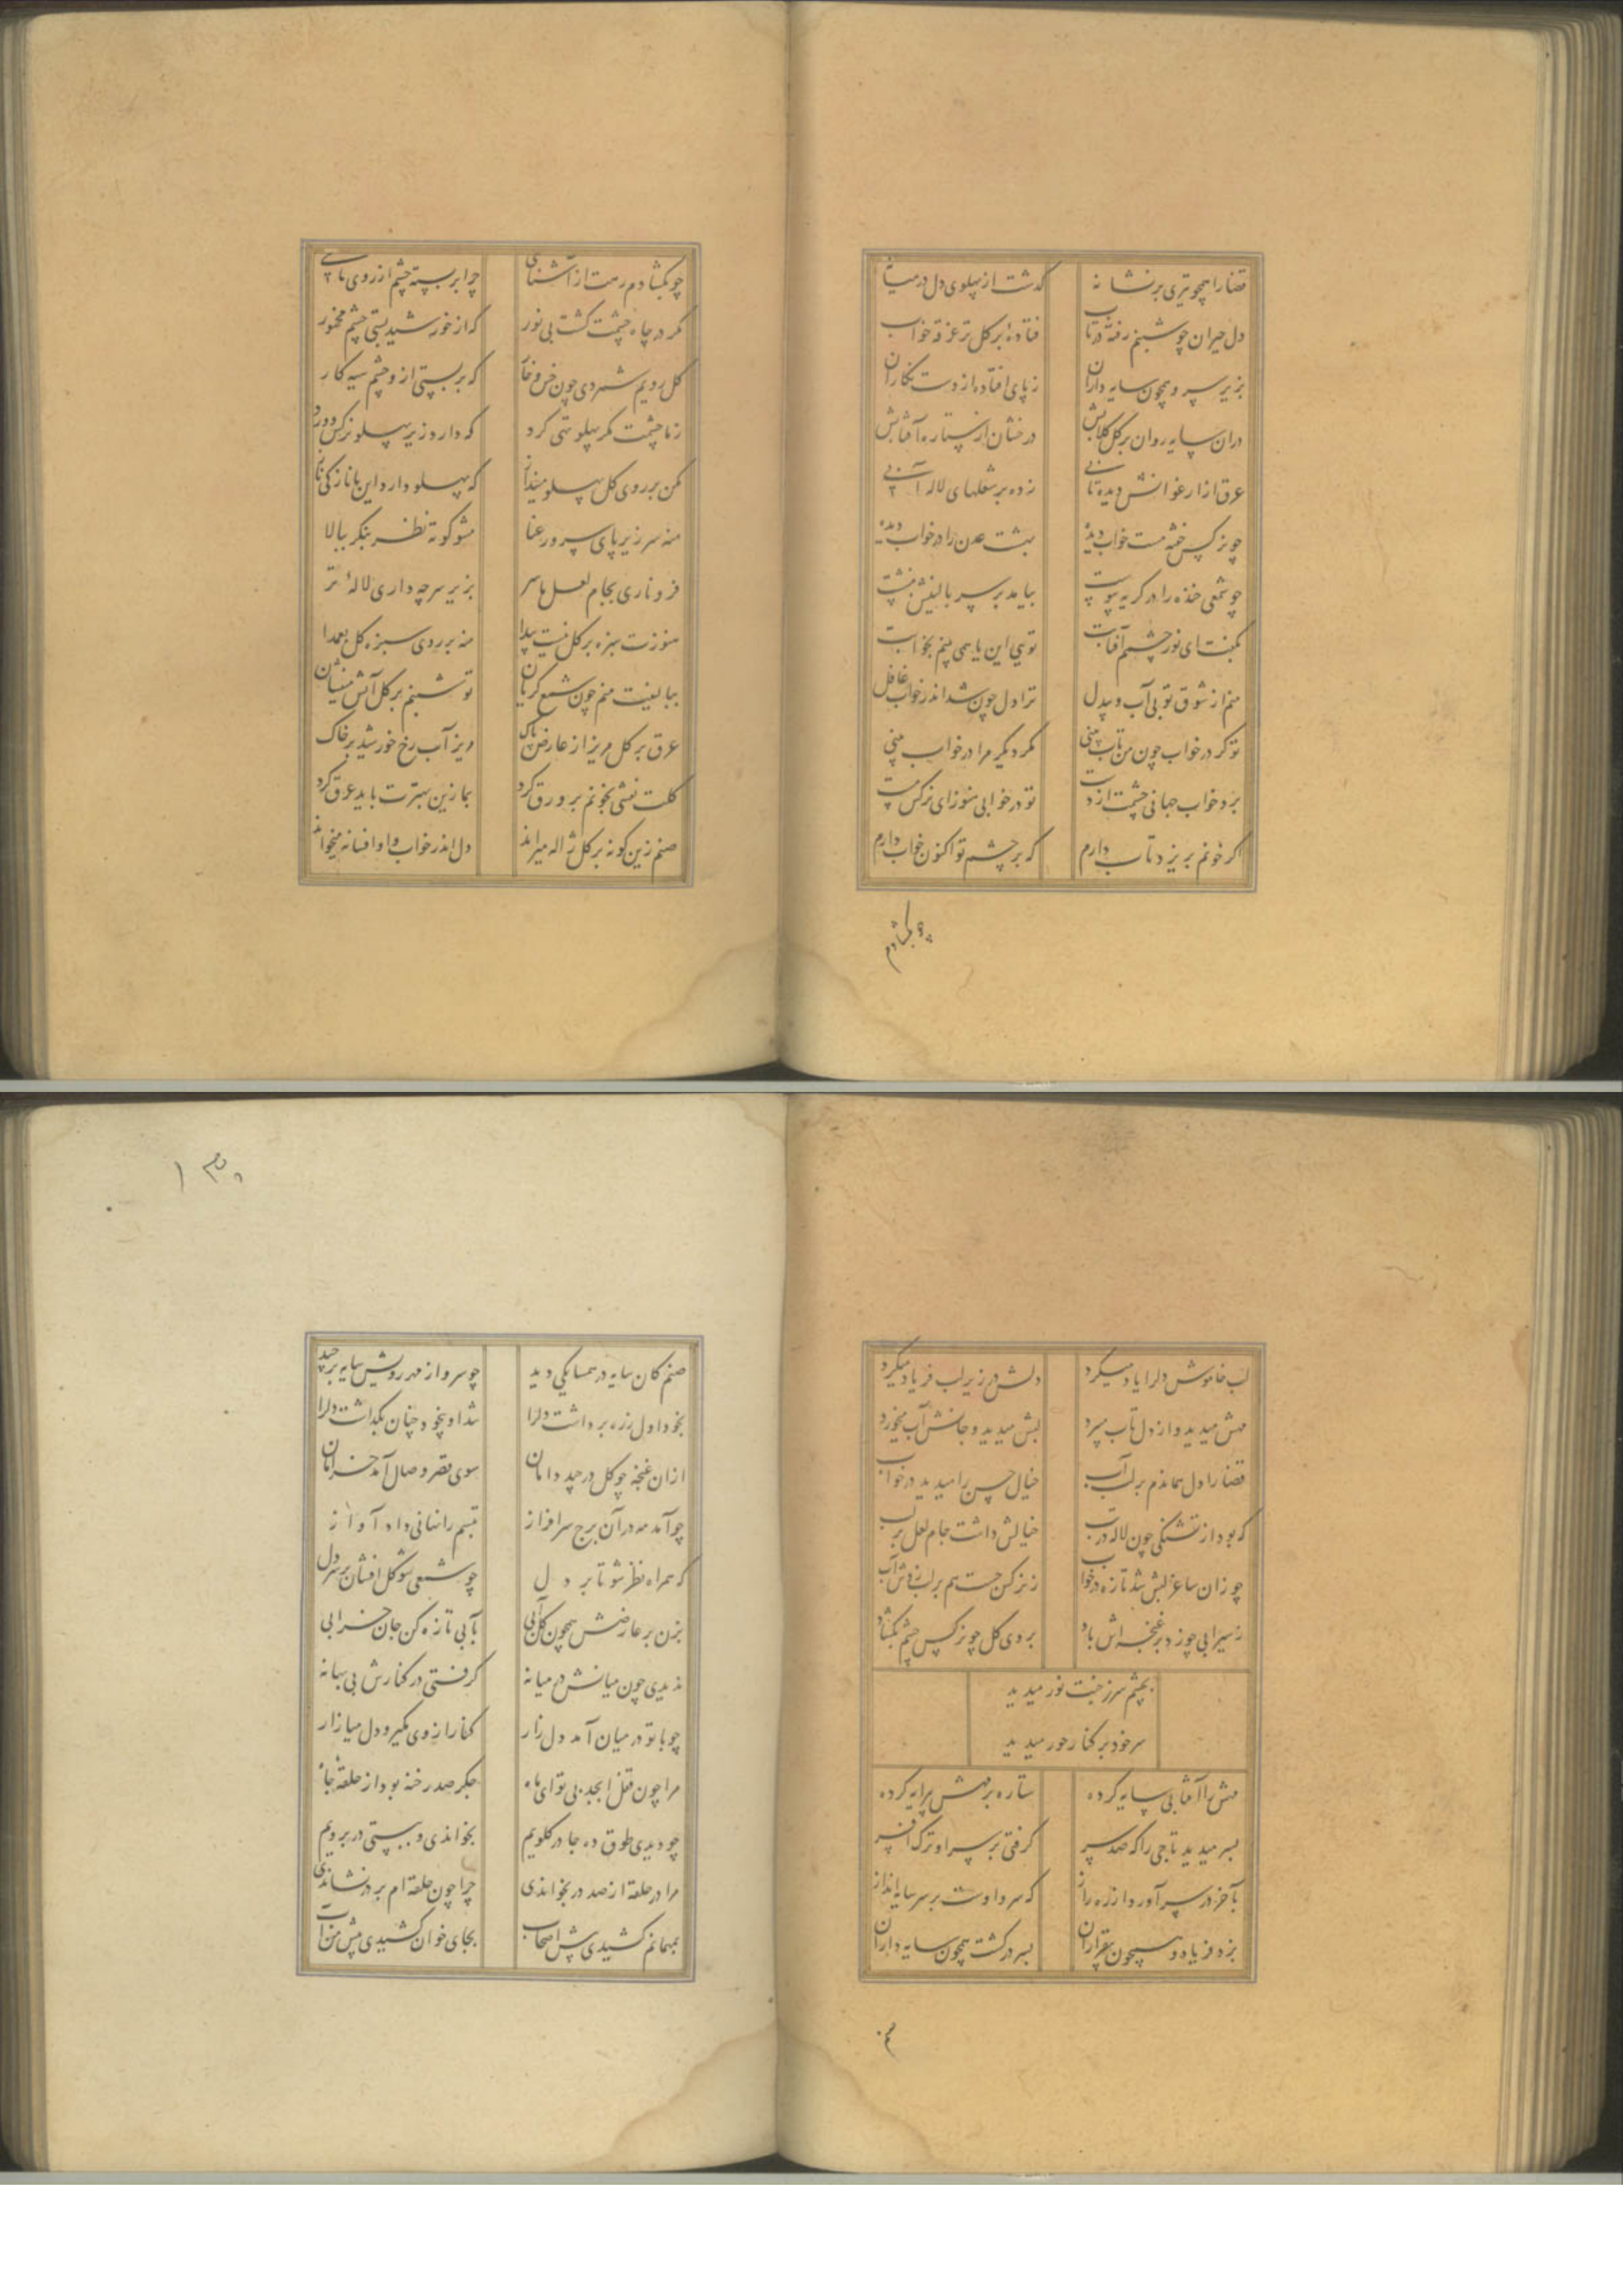 قضا را همچو تیری بر نشانه گذشت از پهلوی دل در میانه
دل حیران چو شبنم رفته در تاب فتاده بر گل تر غرقه خواب
بزیر سرو همچون سایه داران ز پای افتاده از دست نگاران
در آن سایه روان بر گل گلابش درخشان از ستاره آفتابش
عرق از ارغوانش دیده تابی زده بر شعلهای لاله آبی
چو نرگس خفته مست خواب دیده بهشت عدن را در خواب دیده
چو شمعی خنده را در گریه پیوست بیامد بر سر بالینش بنشست
بگفت ای نور چشم آفتابست تویی این یا همی بینم بخوابست
منم از شوق تو بی آب و بیدل ترا دل چون شد اندر خواب غافل
تو گر در خواب چون من تاب بینی مگر دیگر مرا در خواب بینی
برد خواب جهانی چشمت از دست تو در خوابی هنوز ای نرگس مست
اگر خونم بریزد تاب دارم که بر چشم تو اکنون خواب دارم
چو بگشادم
چو بگشادم رهت از آشنایی چرا بر بسته چشم از روی مایی
مگر در چاه چشمت گشت بی نور که از خورشید بستی چشم مخمور
گل رویم شمردی چون خس و خار که بر بستی ازو چشم سیه کار
ز ما چشمت مگر پهلو تهی کرد که دارد زیر پهلو نرگس و ورد
مکن بر روی گل پهلو مینداز که پهلو دارد این با نازکی ناز
منه سر زیر پای سرو رعنا مشو کوته نظر بنگر ببالا
فرو ناری بجام لعل ما سر بزیر سر چه داری لاله تر
هنوزت سبزه بر گل نیست پیدا منه بر روی سبزه گل بعمدا
ببالینت منم چون شمع گریان تو شبنم بر گل آتش میفشان
عرق بر گل مریز از عارض پاک مریز آب رخ خورشید بر خاک
گلت نقشی بخونم بر ورق کرد بما زین بهترت باید عرق کرد
صنم زین گونه بر گل ژاله میراند دل اندر خواب و او افسانه میخواند
لب خاموش دلرا یاد میکرد دلش در زیر لب فریاد میکرد
مهش میدید و از دل تاب میبرد لبش میدید و جانش آب میخورد
قضا را دل بماندم بر لب آب خیال حسن را میدید در خواب
که بود از تشنگی چون لاله در تب خیالش داشت جام لعل بر لب
چو زان ساغر لبش شد تازه در خواب ز نرگس جست هم بر لب زدش آب
ز سیرابی چو زد بر غنچه اش باد بروی گل چو نرگس چشم بگشاد
بچشم سر ز بخت نور میدید
سر خود بر کنار حور میدید
مهش را آفتابی سایه کرده ستاره بر مهش پیرایه کرده
بسر میدید تاجی را که صد سر گرفتی بر سر او ترک افسر
بآخر در سر آورد از ره راز که سرو اوست بر سر سایه انداز
بزد فریاد و همچون بیقراران بسر در گشت همچون سایه داران
صنم
صنم کان سایه در همسایگی دید چو سرو از مهر رویش سایه بر چید
بخود اول ز ره برداشت دلرا شد او بیخود چنان بگذاشت دلرا
از آن غنچه چو گل در چید دامان سوی قصر وصال آمد خرامان
چو آمد مه در آن برج سرافراز تبسم را نهانی داد آواز
که همراه نظر شو تا بر دل چو شمعی شو گل افشان بر سر دل
بزن بر عارضش همچون گل آبی بآبی تازه کن جان خرابی
ندیدی چون میانش در میانه گرفتی در کنارش بی بهانه
چو با تو در میان آمد دل زار کنار از وی مگیر و دل میازار
مرا چون قفل ابجد بی تو ای ماه جگر صد رخنه بود از حلقه جاه
چو دیدی طوق ده جا در گلویم بخواندی و ببستی در برویم
مرا در حلقه از صد در بخواندی چرا چون حلقه ام بر در نشاندی
بمهمانم کشیدی پیش اصحاب بجای خوان کشیدی پیش من آب